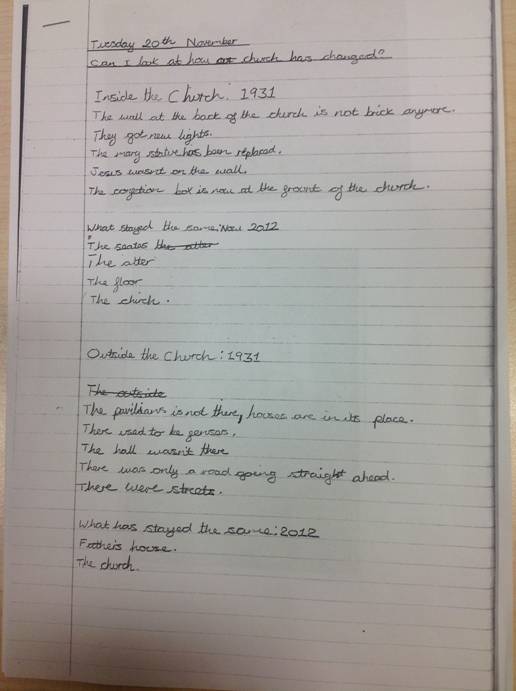 Tuesday 20th November
Can I look at how church has changed?
Inside the Church: 1931
The wall at the back of the church is not brick anymore.
They got new lights.
The mary statue has been replaced.
Jesus wasn't on the wall.
The box is now at the grount of the church.
What stayed the same: Now 2012
The seates the alter
The alter
The floor
The chirch.
Outside the Church: 1931
The outside
The pavilians is not there, houses are in its place.
There used to be genses.
The hall wasn't there
There was only a road going straight ahead.
There were streets.
What has stayed the same: 2012
Father's house.
The church.